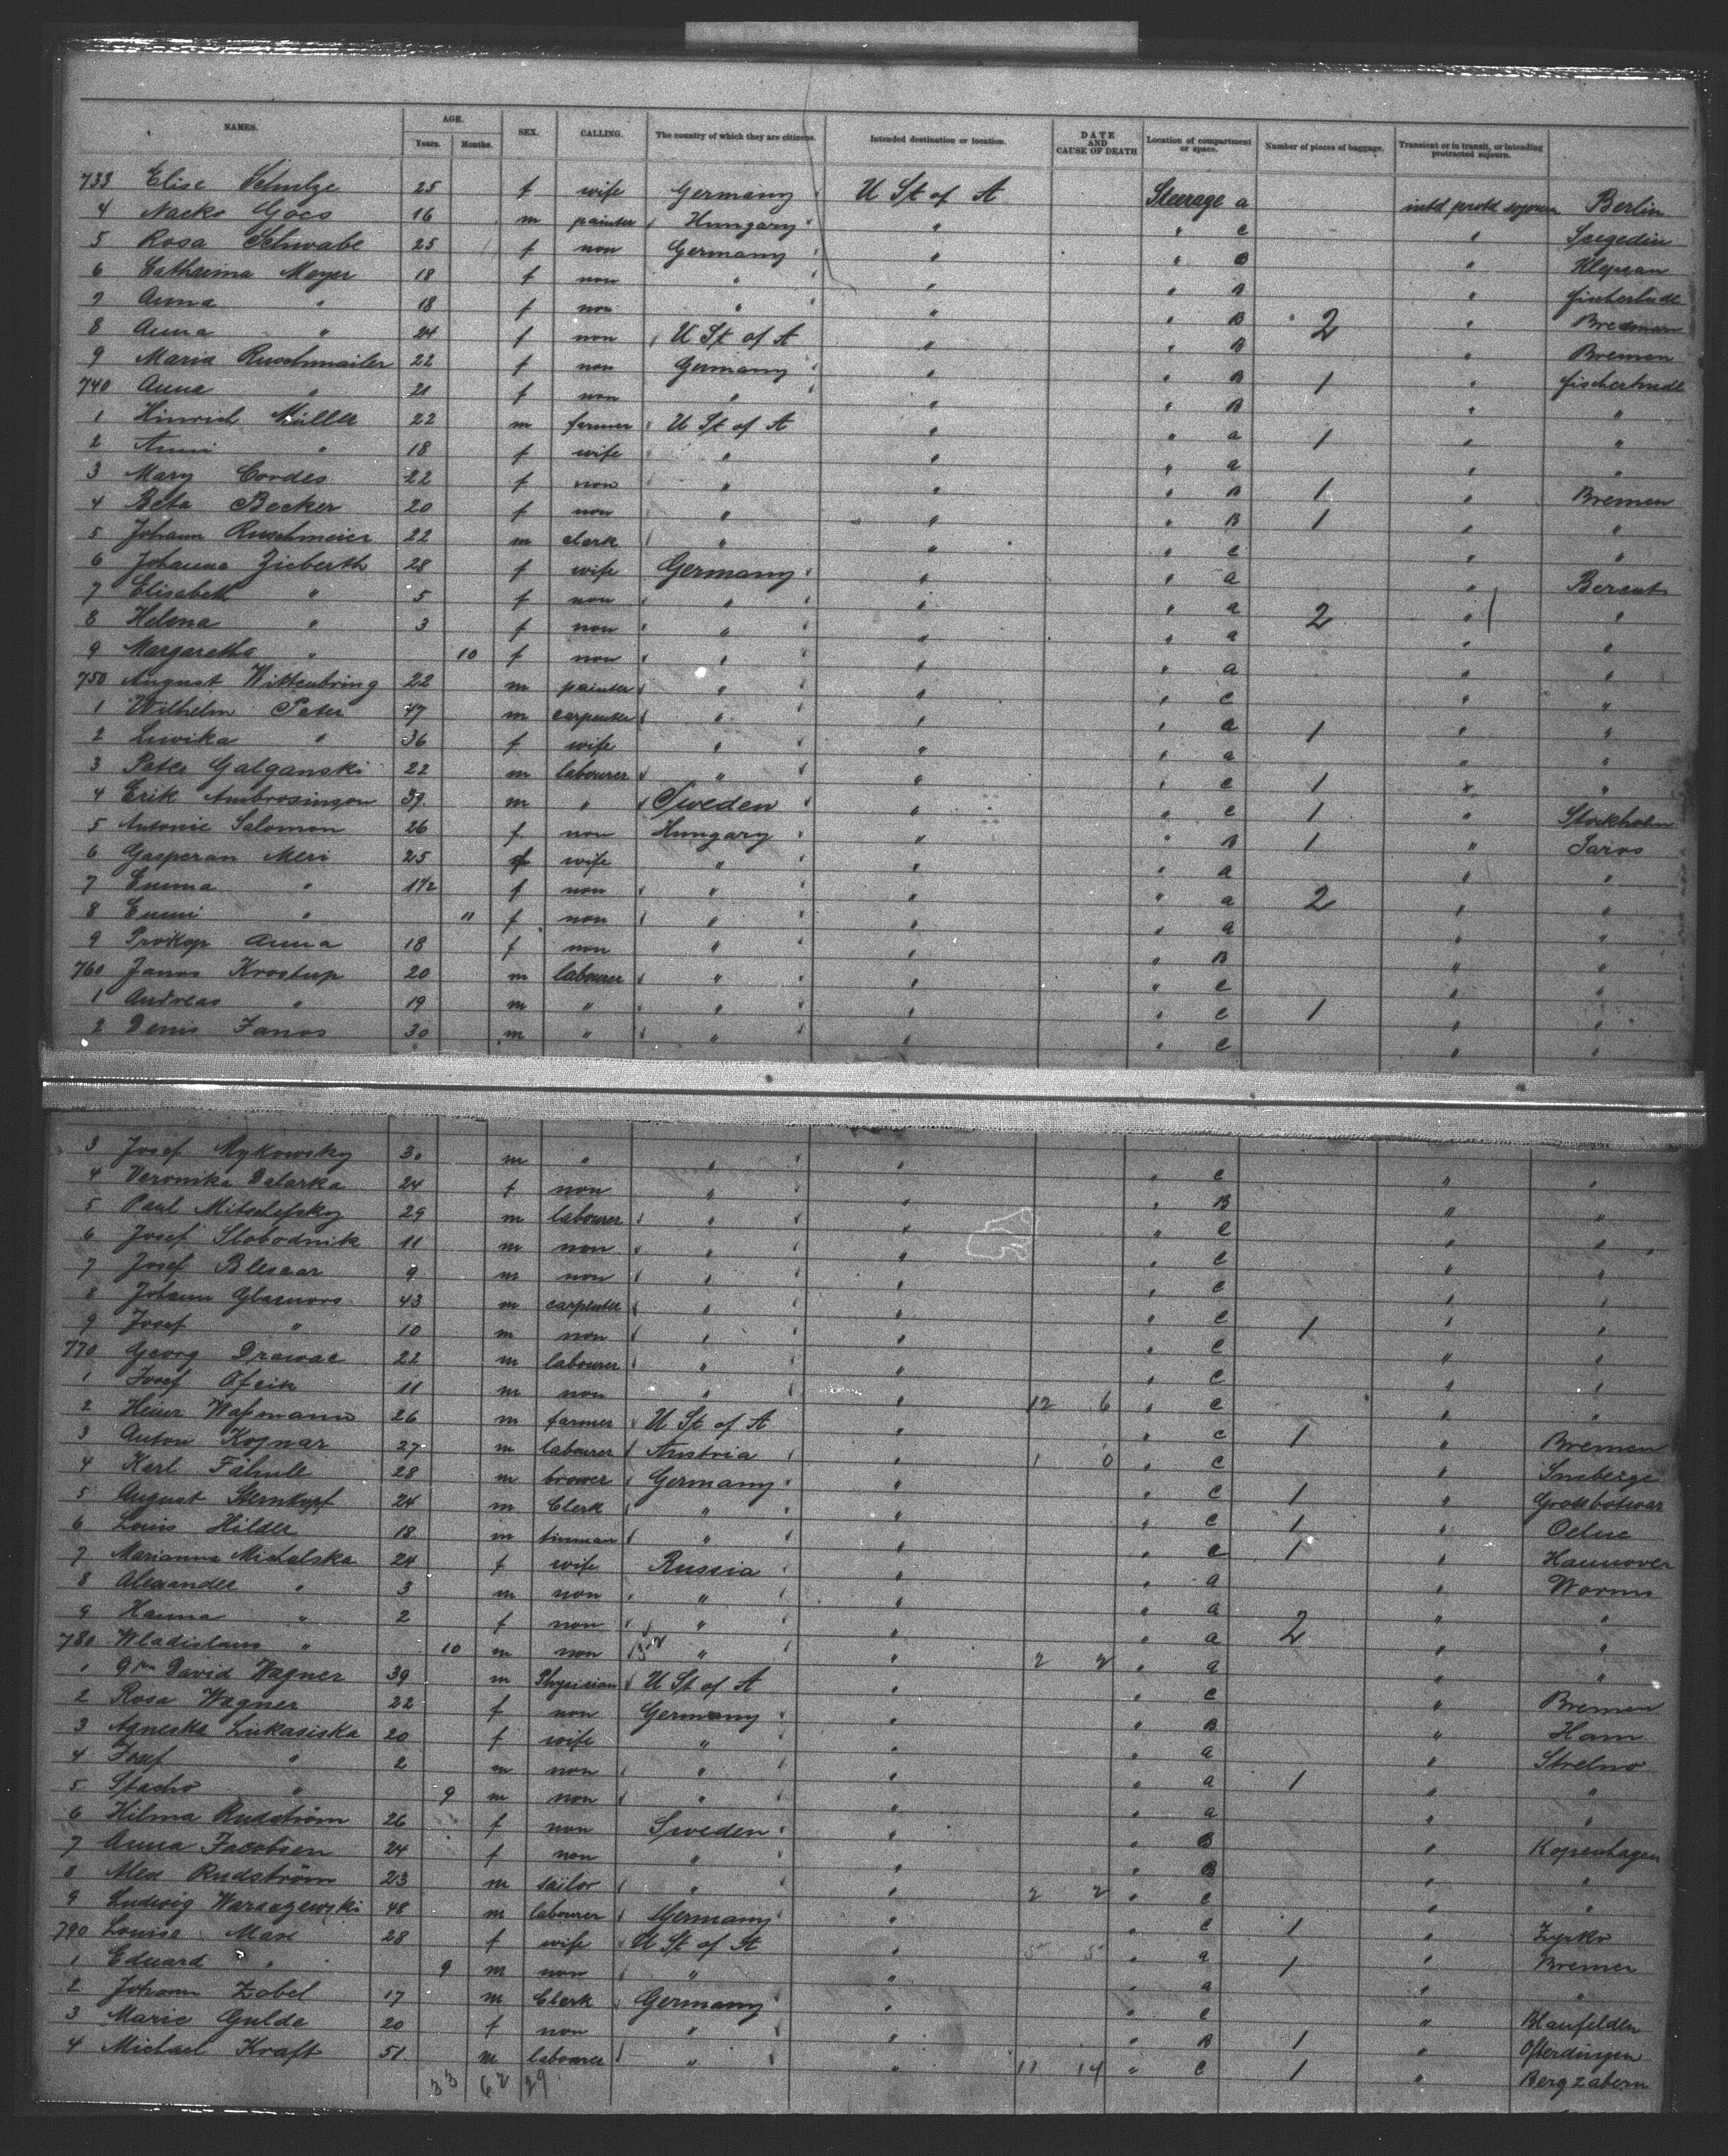 NAMES. AGE. SEX. CALLING. The country of which they are citizens. Intended destination or location. DATE AND CAUSE OF DEATH Location of compartment or space. Number of pieces of baggage. Transient or in transit, or intending protracted sojourn.
Years. Months.
733 Elise Schulze 25 f wife Germany U St of A Steerage a intd protd sojourn Berlin
4 Nacko Gocs 16 m painter Hungary " " c " Szegedin
5 Rosa Schwabe 25 f non Germany " " B "
6 Catharina Meyer 18 f non " " " B " fischerhude
7 Anna " 18 f non " " " B 2 "
8 Anna " 24 f non U St of A " " B " Bremen
9 Maria Ruschmailer 22 f non Germany " " B 1 " fischerhude
740 Anna " 21 f non " " " B " "
1 Hinrich Müller 22 m farmer U St of A " " a 1 " "
2 Anni " 18 f wife " " " a " "
3 Mary Cordes 22 f non " " " B 1 " Bremen
4 Beta Becker 20 f non " " " B 1 " "
5 Johann Ruschmeier 22 m clerk " " " c " "
6 Johanna Zieberth 28 f wife Germany " " a " Berent
7 Elisabeth " 5 f non " " " a 2 " "
8 Helena " 3 f non " " " a " "
9 Margaretha " 10 f non " " " a " "
750 August Wittenbring 22 m painter " " " c " "
1 Wilhelm Peter 47 m carpenter " " " a 1 " "
2 Luvika " 36 f wife " " " a " "
3 Peter Galganski 22 m labourer " " " c 1 " "
4 Erik Ambrosingon 39 m " Sweden " " c 1 " Stockholm
5 Antonie Salomon 26 f non Hungary " " B 1 " Saros
6 Gasperan Meri 25 f wife " " " a " "
7 Emma " 1½ f non " " " a 2 " "
8 Emmi " " f non " " " a " "
9 Prokop Anna 18 f non " " " B " "
760 Janos Krostup 20 m labourer " " " c " "
1 Andreas " 19 m " " " " c 1 " "
2 Denis Janos 30 m " " " " c " "
3 Josef Mykowsky 30 m " " " " c " "
4 Veronika Datarka 24 f non " " " B " "
5 Paul Mitschefsky 29 m labourer " " " c " "
6 Josef Slobodnik 11 m non " " " c " "
7 Josef Blesaar 9 m non " " " c " "
8 Johann 43 m carpenter " " " c 1 " "
9 Josef " 10 m non " " " c " "
770 Georg Drawac 22 m labourer " " " c " "
1 Josef Ofcik 11 m non " " 12 6 " c " "
2 Heinr Waßmann 26 m farmer U St of A " " c 1 " Bremen
3 Anton Kognar 27 m labourer Austria " 1 0 " c "
4 Karl Fähnle 28 m brower Germany " " c 1 " Grossbotwar
5 August Sternkopf 24 m Clerk " " " c 1 " Oelse
6 Louis Hilder 18 m tinman " " " c 1 " Hannover
7 Marianna Michalska 24 f wife Russia " " a " Worms
8 Alexander " 3 m non " " " a " "
9 Hanna " 2 f non " " " a 2 " "
780 Wladislaus " 10 m non " " 2 2 " a " "
1 Drm David Wagner 39 m Physician U St of A " " c " Bremen
2 Rosa Wagner 22 f non Germany " " B " Ham
3 Agneska Lukasiska 20 f wife " " " a " Strelno
4 Josef " 2 m non " " " a 1 " "
5 Stacho " 9 m non " " " a " "
6 Hilma Rudström 26 f non Sweden " " B " Kopenhagen
7 Anna Jacobsen 24 f non " " " B " "
8 Alex Rudström 23 m sailor " " 2 2 " c " "
9 Ludwig Warsazewski 48 m labourer Germany " " c 1 " Zyrko
790 Louise Mase 28 f wife U St of A " 5 5 " a 1 " Bremen
1 Eduard " 9 m non " " " a " "
2 Johann Zobel 17 m Clerk Germany " " c " Blaufelden
3 Marie Gulde 20 f non " " " B 1 " Ofterdingen
4 Michael Kraft 51 m labourer " " 11 14 " c 1 " Bergzabern
33 62 29